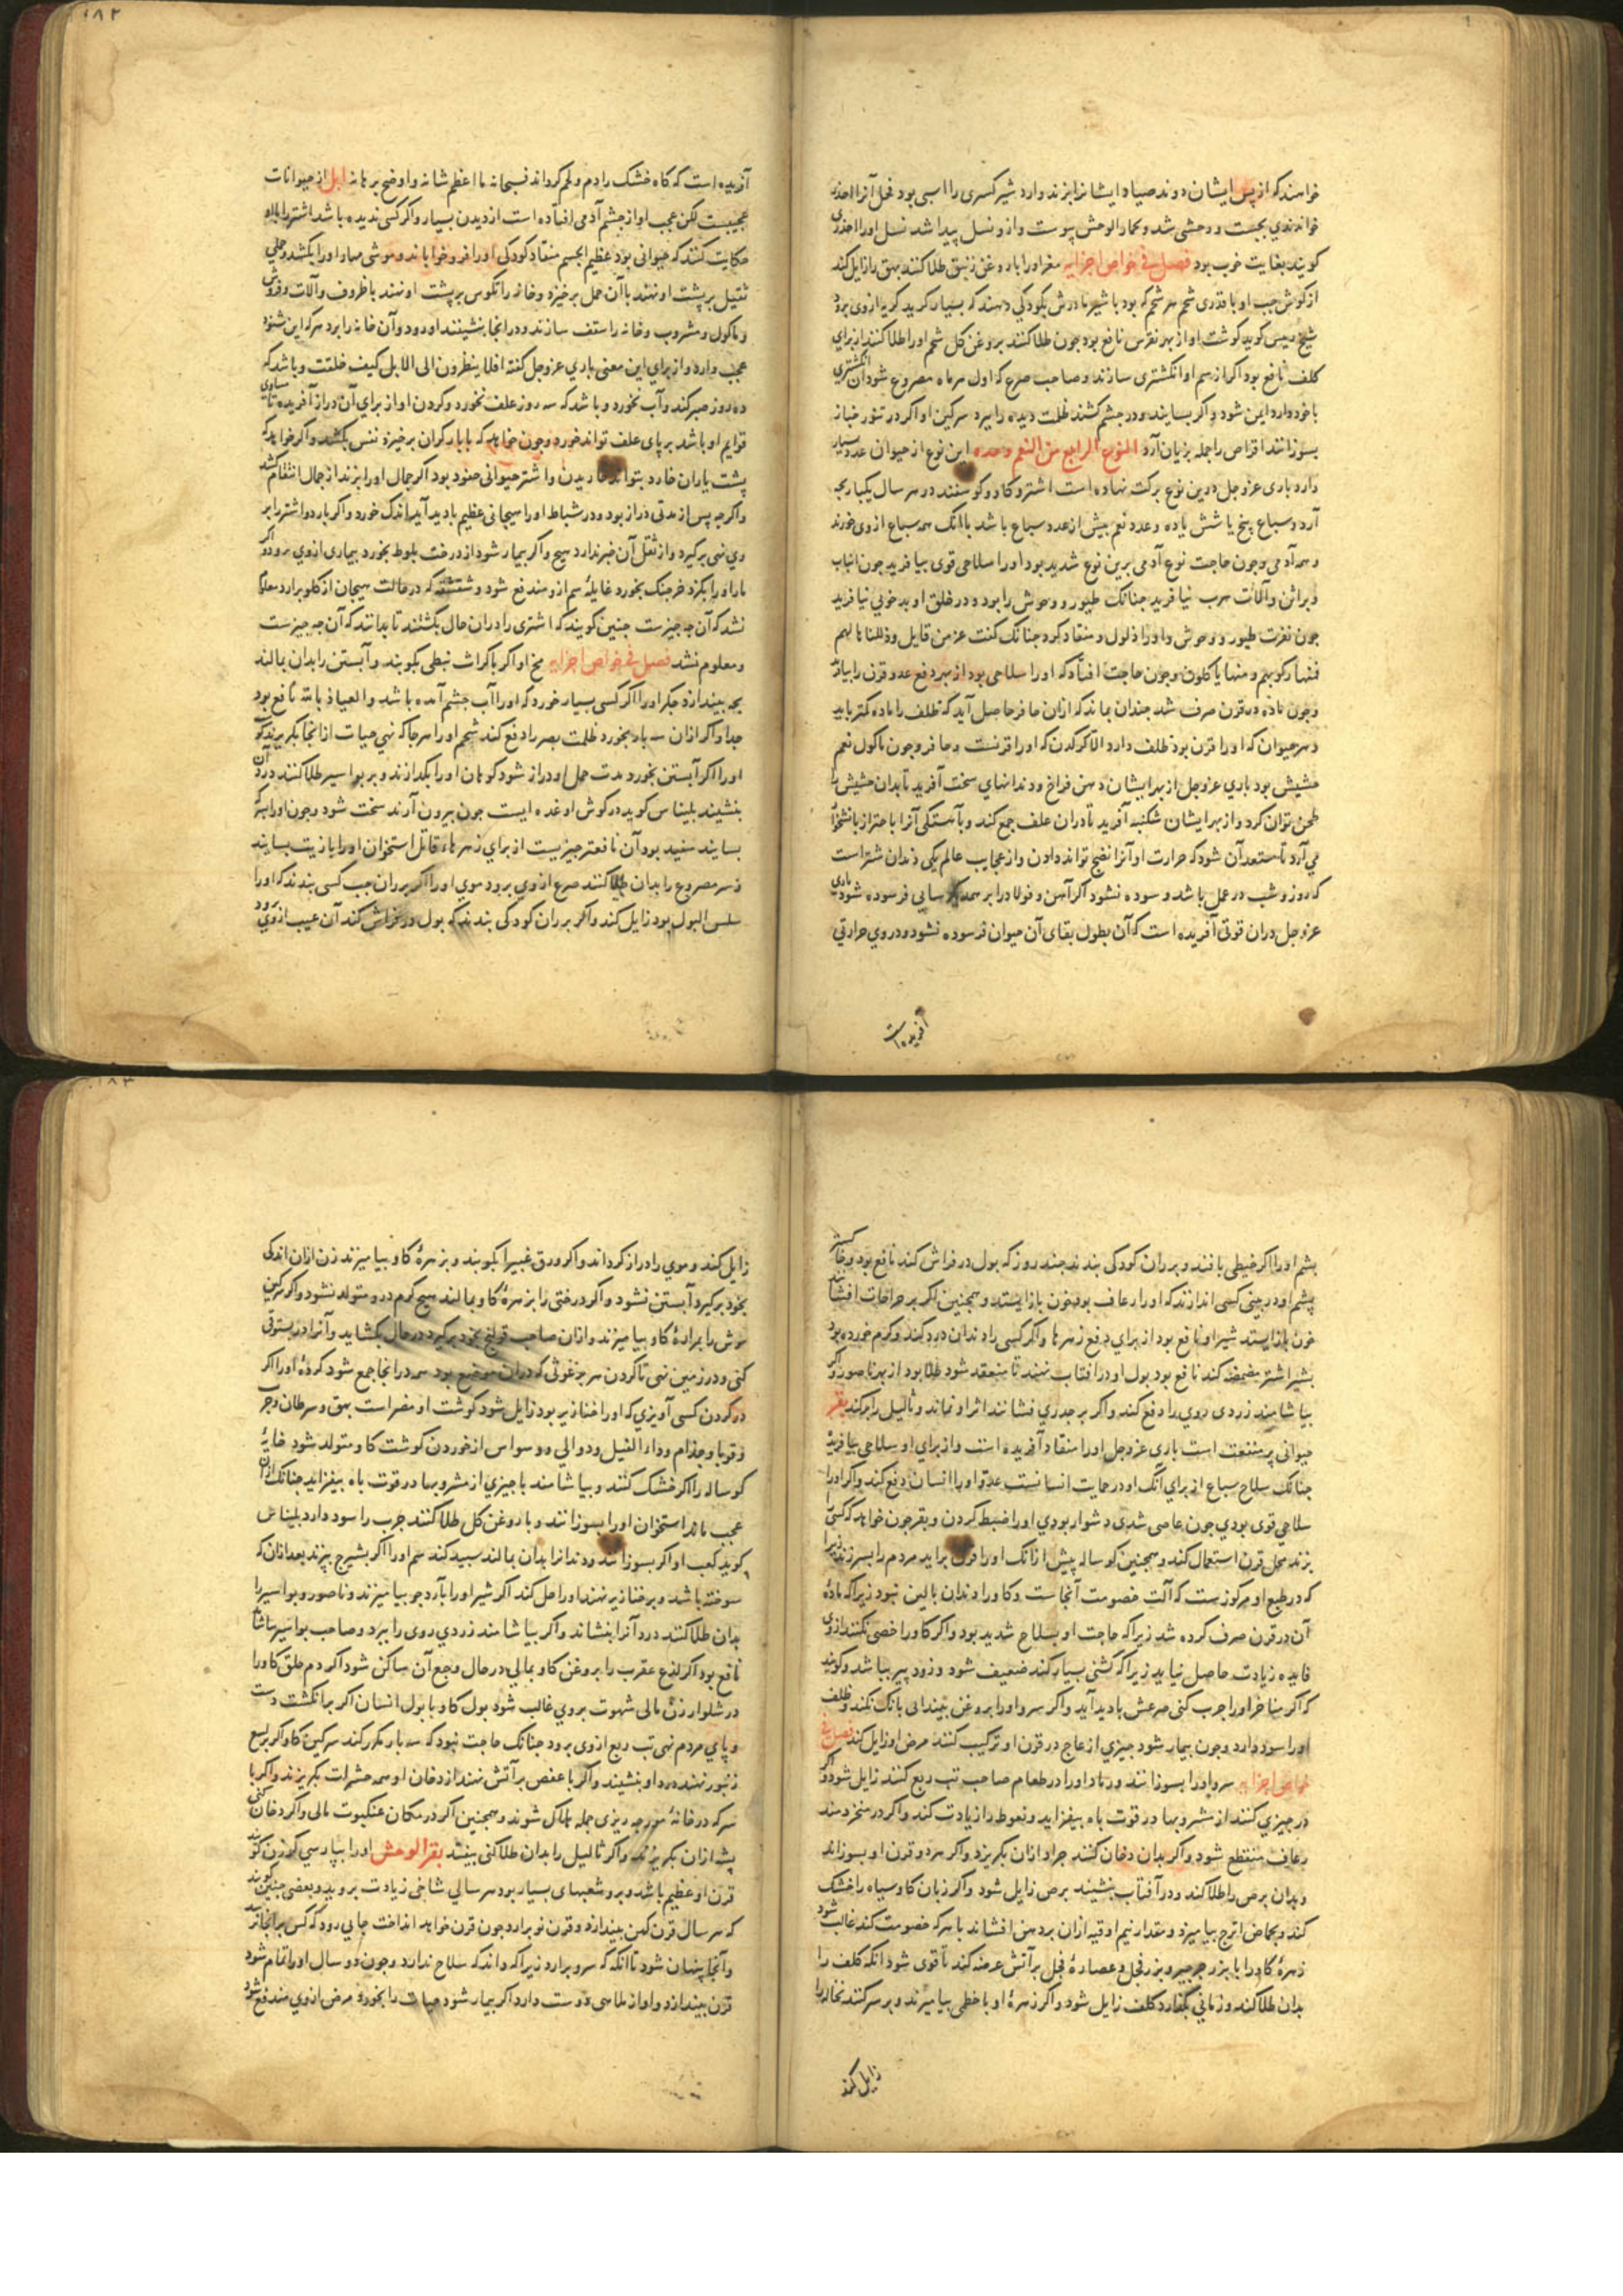 خواهند که از پس ایشان دوند صیاد ایشانرا بزند وارد شیر کسری را اسبی بود فحل آنرا اخذر
خواندندی بجست و وحشی شد و بحمار الوحش پیوست و ازو نسل پیدا شد نسل اورا اخذری
کویند بغایت خوب بود فصل فی خواص اجزایه مغز اورا با روغن زنبق طلا کنند بهق را زایل کند
از کوش جب او با قدری شحم هر شحم که بود با شیر مادرش بکودکی دهند که بسیار کرید کریه ازوی برد
شیخ رییس کوید کوشت او از بهر نقرس نافع بود جون طلا کنند بروغن کل شحم اورا طلا کنند از برای
کلف نافع بود اکر از سم او انکشتری سازند و صاحب صرع که اول هر ماه مصروع شود آن انکشتری
با خود دارد ایمن شود و اکر بسایند و در جشم کشند ظلمت دیده را ببرد سرکین او اکر در تنور خباز
بسوزانند اقراص را جمله بزیان آرد النوع الرابع من النعم این نوع از حیوان عدد بسیار
دارد باری عز و جل درین نوع برکت نهاده است اشتر و کاو و کوسفند در هر سال یکبار بجه
آرد و سباع پنج یا شش یا ده و عدد نعم بیش از عدد سباع باشد با آنک همه سباع ازوی خورند
و همه آدمی و جون حاجت نوع آدمی برین نوع شدید بود اورا سلاحی قوی نیافرید جون انیاب
و براثن و آلات هرب نیافرید جنانک طیور و وحوش را بود و در خلق او بدخویی نیافرید
جون نفرت طیور و وحوش و اورا ذلول و منقاد کرد جنانک کفت عز من قایل و ذللناها لهم
فمنها رکوبهم و منها یاکلون و جون حاجت افتاد که اورا سلاحی بود از بهر دفع عدو قرن را بیافرید
و جون ماده در قرن صرف شد جندان نماند که ازان حافر حاصل آید که ظلف را ماده کمتر باید
و هر حیوان که اورا قرن بود ظلف دارد الا کرکدن که اورا قرنست و حافر و جون ماکول نعم
حشیش بود باری عز و جل از بهر ایشان دهن فراخ و دندانهای سخت آفرید تا بدان حشیش را
طحن توان کرد و از بهر ایشان شکنبه آفرید تا دران علف جمع کند و بآهستکی آنرا با اجترار بانشخوا
می آرد تا مستعد آن شود که حرارت او آنرا نضج تواند دادن و از عجایب عالم یکی دندان شترست
که روز و شب در عمل باشد و سوده نشود اکر آهن و فولاد را بر هم سایی فرسوده شود باری
عز و جل دران قوتی آفریده است که آن بطول بقای آن حیوان فرسوده نشود و در وی حرارتی
آفریده است
آفریده است که کاه خشک را دم و لحم کرداند فسبحانه ما اعظم شانه و اوضح برهانه ابل از حیوانات
عجیبست لکن عجب او از جشم آدمی افتاده است از دیدن بسیار و اکر کسی ندیده باشد اشتر را با او
حکایت کنند که حیوانی بود عظیم الجسم منقاد کودکی اورا فرو خواباند و موشی مهار اورا بکشد و حملی
ثقیل بر پشت او نهند با آن حمل برخیزد و خانه را تکوس بر پشت او نهند با ظروف و آلات و فروش
و ماکول و مشروب و خانه را سقف سازند و در انجا بنشینند او رود و آن خانه را برد هر که این شنود
عجب دارد و از برای این معنی باری عز و جل کفته افلا ینظرون الی الابل کیف خلقت و باشد که
ده روز صبر کند و آب نخورد و باشد که سه روز علف نخورد و کردن او از برای آن دراز آفریده تا مساوی
قوایم او باشد بر پای علف تواند خورد و جون خواهد که با بار کران برخیزد نفس بکشد و اکر خواهد که
پشت یا ران خارد بتواند خاریدن و اشتر حیوانی حقود بود اکر جمال اورا بزند از جمال انتقام کشد
و اکرجه پس از مدتی دراز بود و در شباط اورا هیجانی عظیم بادید آید اندک خورد و اکر بار دو اشتر را بر
وی نهی برکیرد و از ثقل آن خبر ندارد هیج و اکر بیمار شود از درخت بلوط بخورد بیماری ازوی برود و اکر
مار اورا بکزد خرجنک بخورد غایله سم ازو مندفع شود و شقشقه که در حالت هیجان از کلو برآرد معلوم
نشد که آن جه جیزست جنین کویند که اشتری را دران حال بکشتند تا بدانند که آن جه جیزست
و معلوم نشد فصل فی خواص اجزایه مخ او اکر با کراث نبطی بکوبند و آبستن را بدان بمالند
بجه بیندازد جکر اورا اکر کسی بسیار خورد که اورا آب جشم آمده باشد و العیاذ بالله نافع بود
جدا و اکر ازان سه بار بخورد ظلمت بصر را دفع کند شحم اورا هر جا که نهی حیات از انجا بکریزند
اورا اکر آبستن بخورد مدت حمل او دراز شود کوهان اورا بکدازند و بر بواسیر طلا کنند درد آن
بنشیند بلیناس کوید در کوش او غده ایست جون بیرون آرند سخت شود و جون اورا بسرکه
بسایند سفید بود آن نافعتر جیزیست از برای زهرهاء قاتل استخوان اورا بازیت بسایند
و سر مصروع را بدان طلا کنند صرع ازوی برود موی اورا اکر بر ران جب کسی بندند که اورا
سلس البول بود زایل کند و اکر بر ران کودکی بندند که بول در فراش کند آن عیب ازوی برود
پشم اورا اکر خیطی بافند و بر ران کودکی بندند جند روز که بول در فراش کند نافع بود و خاکستر
پشم او در بینی کسی اندازند که اورا رعاف بود خون باز ایستد و همجنین اکر بر جراحات افشانند
خون باز ایستد شیر او نافع بود از برای دفع زهرها و اکر کسی را دندان درد کند و کرم خورده بود
بشیر اشتر مضمضه کند نافع بود بول او در افتاب نهند تا منعقد شود طلا بود از بهر ناصور و اکر
بیاشامند زردی روی را دفع کند و اکر بر جدری فشانند اثر او نماند و ثآلیل را برکند بقر
حیوانی پر منفعت است باری عز و جل اورا منقاد آفریده است و از برای او سلاحی نیافرید
جنانک سلاح سباع از برای آنک او در حمایت انسانست عدو اورا انسان دفع کند و اکر اورا
سلاحی قوی بودی جون عاصی شدی دشوار بودی اورا ضبط کردن و بقر جون خواهد که کسی
بزند محل قرن استعمال کند و همجنین کوساله پیش از آنک اورا قرن برآید مردم را بسر زند زیرا
که در طبع او مرکوزست که آلت خصومت آنجاست و کاو را دندان بالین نبود زیرا که ماده
آن در قرن صرف کرده شد زیرا که حاجت او بسلاح شدید بود و اکر کاو را خصی نکنند ازوی
فایده زیادت حاصل نیاید زیرا که کشنی بسیار کند ضعیف شود و زود پیر باشد و کویند
که اکر مناخر اورا جرب کنی صرعش بادید آید و اکر سرو اورا بروغن بیندایی بانک نکند و ظلف
اورا سود دارد و جون بیمار شود جیزی از عاج در قرن او ترکیب کنند مرض او زایل کند فصل فی
خواص اجزایه سرو اورا بسوزانند و رماد اورا در طعام صاحب تب ربع کنند زایل شود و اکر
در جیزی کنند از مشروبها در قوت باه بیفزاید و نعوظ را زیادت کند و اکر در منخر دمند
رعاف منقطع شود و اکر بدان دخان کنند جراد ازان بکریزد و اکر هر دو قرن او بسوزاند
و بدان برص را طلا کند و در آفتاب بنشیند برص زایل شود و اکر زبان کاو سیاه را خشک
کند و بحماض اترج بیامیزد و مقدار نیم اوقیه ازان بر دهن افشاند با هر که خصومت کند غالب شود
زهره کاو را با بزر جرجیر و بزر فجل و عصاره فجل بر آتش عرضه کند تا قوی شود آنکه کلف را
بدان طلا کند و زمانی بکذارد کلف زایل شود و اکر زهره او با خطمی بیامیزند و بر سر کنند نخاله را
زایل کند
زایل کند و موی را دراز کرداند و اکر ورق غبیرا بکوبند و بزهره کاو بیامیزند زن ازان اندکی
بخود برکیرد آبستن نشود و اکر درختی را بزهره کاو بمالند هیج کرم درو متولد نشود و اکر سرکین
موش را بمراره کاو بیامیزند و ازان صاحب قولنج بخود برکیرد در حال بکشاید و آنرا در بستوقی
کنی و در زمین نهی تا کردن هر برغوثی که دران موضع بود همه در انجا جمع شود کرده اورا اکر
در کردن کسی آویزی که اورا خنازیر بود زایل شود کوشت او مضر است بهق و سرطان و جرب
و قوبا و جذام و دا‌ء الفیل و دوالی و وسواس از خوردن کوشت کاو متولد شود خایه
کوساله را اکر خشک کنند و بیاشامند با جیزی از مشروبها در قوت باه بیفزاید جنانک ازان
عجب ماند استخوان اورا بسوزانند و با روغن کل طلا کنند جرب را سود دارد بلیناس
کوید کعب او اکر بسوزانند و دندانرا بدان بمالند سپید کند سم اورا اکر بشیرج بپزند بعد ازان که
سوخته باشد و بر خنازیر نهند اورا حل کند اکر شیر اورا بآرد جو بیامیزند و ناصور و بواسیر را
بدان طلا کنند درد آنرا بنشاند و اکر بیاشامند زردی روی را ببرد و صاحب بواسیر
نافع بود اکر لذع عقرب را بروغن کاو بمالی در حال وجع آن ساکن شود اکر دم حلق کاو را
در شلوار زن مالی شهوت بروی غالب شود بول کاو با بول انسان اکر بر انکشت دست
و پای مردم نهی تب ربع ازوی برود جنانک حاجت نبود که سه بار مکرر کند سرکین کاو اکر بر لسع
زنبور نهند درد او بنشیند و اکر با عفص بر آتش نهند از دخان او همه حشرات بکریزند و اکر با
سرکه در خانه مورجه ریزی جمله هلاک شوند و همجنین اکر در مکان عنکبوت مالی و اکر دخان کنی
پشه ازان بکریزند و اکر ثآلیل را بدان طلا کنی بیفتد بقر الوحش اورا بپارسی کوزن کویند
قرن او عظیم باشد و برو شعبهای بسیار بود هر سالی شاخی زیادت بروید و بعضی جنین کویند
که هر سال قرن کهن بیندازد و قرن نو برآرد جون قرن خواهد انداخت جایی رود که کس بر انجا نرسد
و آنجا پنهان شود تا آنکه که سرو برآرد زیرا که داند که سلاح ندارد و جون دو سال اورا تمام شود
قرن بیندازد و آواز ملاهی دوست دارد اکر بیمار شود حیات را بخورد مرض ازوی مندفع شود